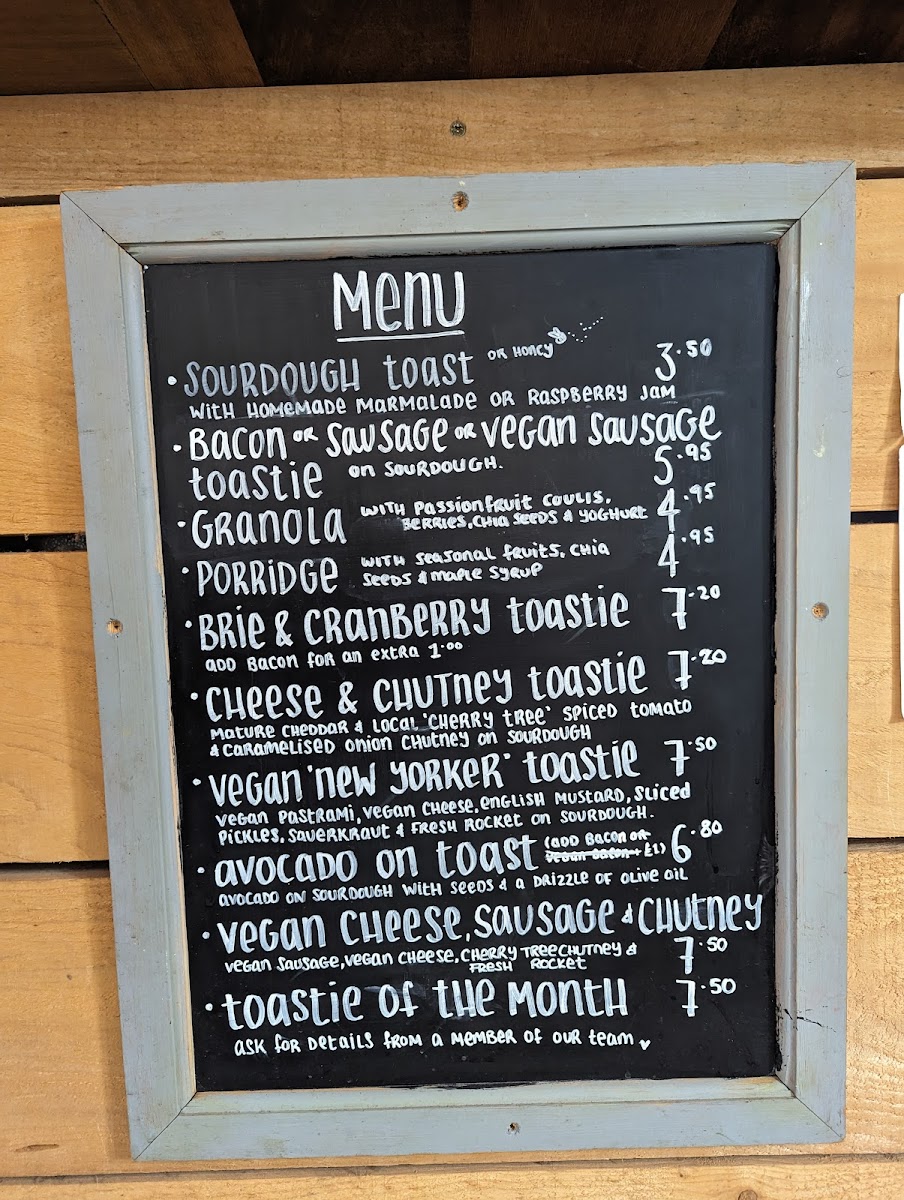 Menu
• SOURDOUGH toast OR HONEY 3.50
WITH HOMEMADE MARMALADE OR RASPBERRY JAM
• BACON OR SAUSAGE OR VEGAN SAUSAGE
toastie ON SOURDOUGH. 5.95
• GRANOLA WITH PASSIONFRUIT COULIS,
BERRIES, CHIA SEEDS & YOGHURT 4.95
• PORRIDGE WITH SEASONAL FRUITS, CHIA
SEEDS & MAPLE SYRUP 4.95
• BRIE & CRANBERRY toastie 7.20
ADD BACON FOR AN EXTRA 1.00
• CHEESE & CHUTNEY toastie 7.20
MATURE CHEDDAR & LOCAL 'CHERRY TREE' SPICED TOMATO
& CARAMELISED ONION CHUTNEY ON SOURDOUGH
• VEGAN 'NEW YORKER' toastie 7.50
VEGAN PASTRAMI, VEGAN CHEESE, ENGLISH MUSTARD, SLICED
PICKLES, SAUERKRAUT & FRESH ROCKET ON SOURDOUGH.
• AVOCADO ON TOAST (ADD BACON OR
VEGAN BACON + £1) 6.80
AVOCADO ON SOURDOUGH WITH SEEDS & A DRIZZLE OF OLIVE OIL
• VEGAN CHEESE, SAUSAGE & CHUTNEY
VEGAN SAUSAGE, VEGAN CHEESE, CHERRY TREE CHUTNEY & 7.50
FRESH ROCKET
• toastie OF THE MONTH 7.50
ASK FOR DETAILS FROM A MEMBER OF OUR TEAM ♥